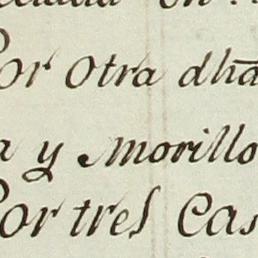 Por Otra dha
a y Morillo
Por tres Cas